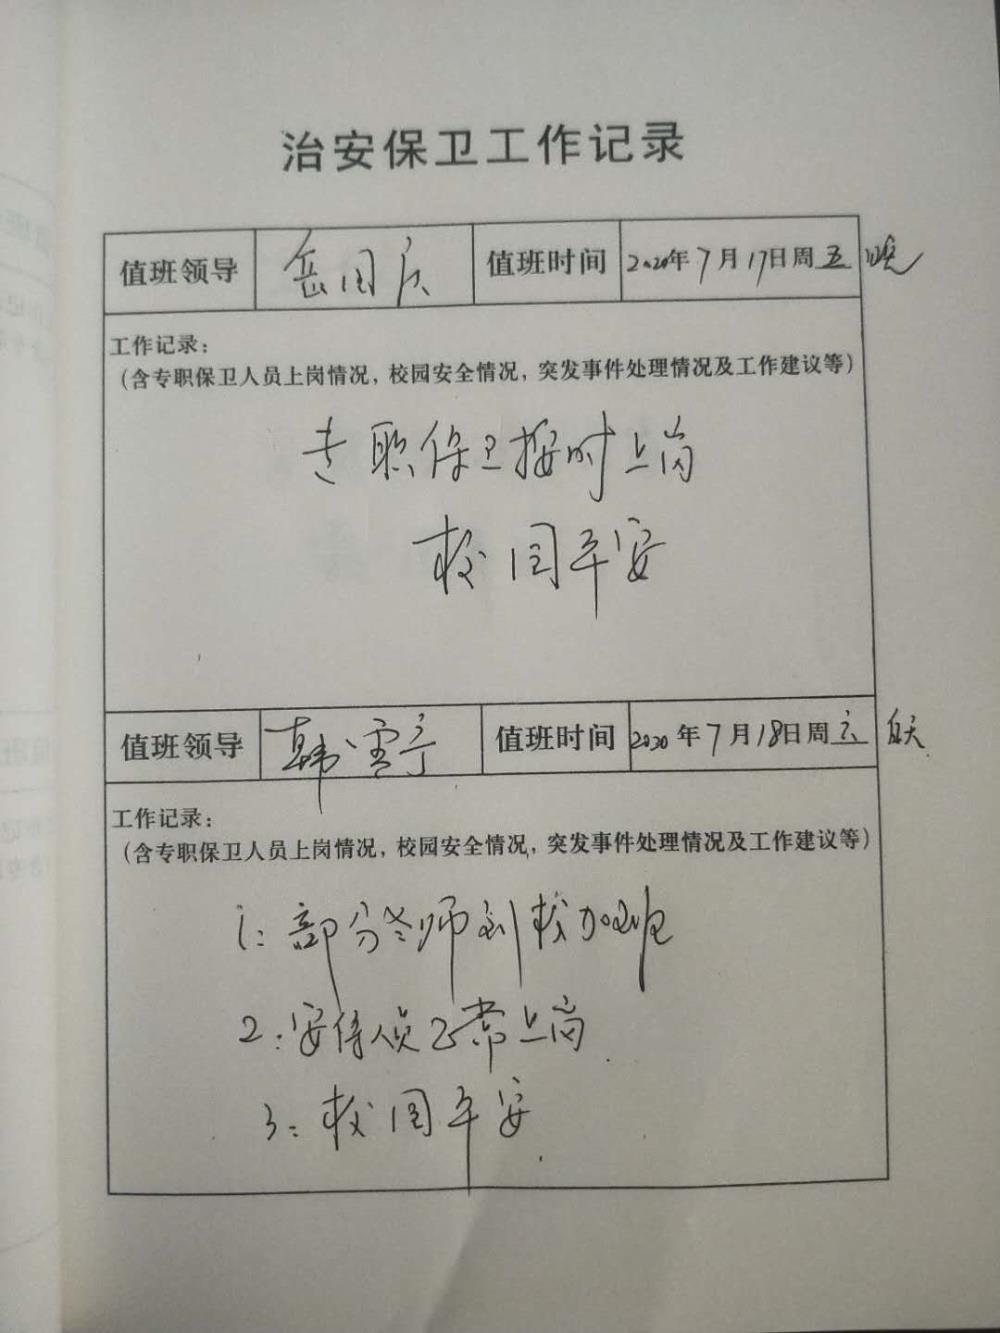 治安保卫工作记录
值班领导 岳国庆 值班时间 2020年7月17日周五 晚
工作记录：
（含专职保卫人员上岗情况，校园安全情况，突发事件处理情况及工作建议等）
专职保卫按时上岗
校园平安
值班领导 韩雪宁 值班时间 2020年7月18日周六 白天
工作记录：
（含专职保卫人员上岗情况，校园安全情况，突发事件处理情况及工作建议等）
1：部分老师到校加班
2：安保人员正常上岗
3：校园平安